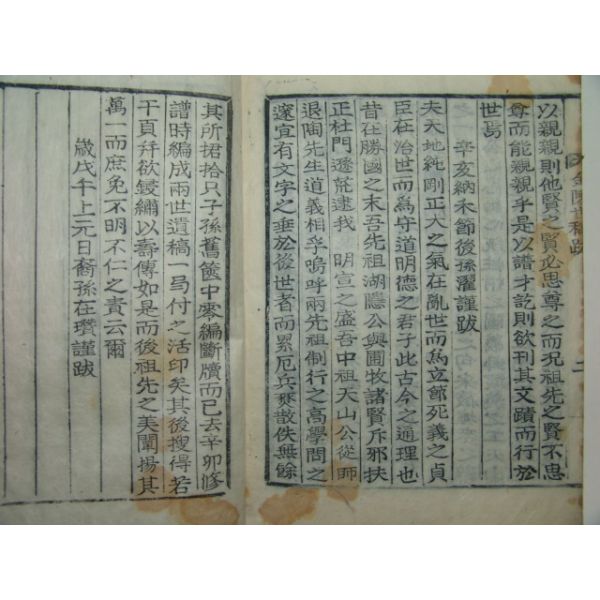 以親親則他賢之賢必思尊之而况祖先之賢不思
尊而能親親乎是以譜才訖則欲刊其文蹟而行於
世焉
辛亥納禾節後孫濯謹跋
夫天地純剛正大之氣在亂世而爲立節死義之貞
臣在治世而爲守道明德之君子此古今之通理也
昔在勝國之末吾先祖湖隱公與圃牧諸賢斥邪扶
正杜門遯荒逮我 明宣之盛吾中祖天山公從師
退陶先生道義相孚嗚呼兩先祖制行之高學問之
邃宜有文字之垂於後世者而累厄兵燹散佚無餘
其所捃拾只子孫舊篋中零編斷牘而已去辛卯修
譜時編成兩世遺稿一弓付之活印矣其後搜得若
干頁幷欲鋟繡以壽傳如是而後祖先之美闡揚其
萬一而庶免不明不仁之責云爾
歲戊午上元日裔孫在瓚謹跋